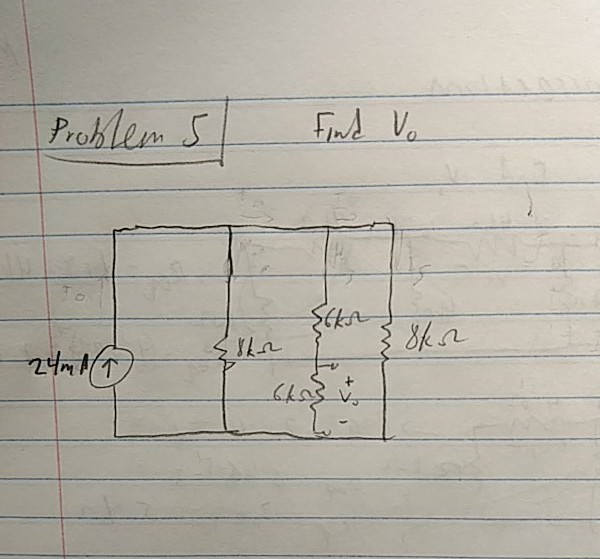 Problem 5 Find V₀
6kΩ
8kΩ 8kΩ
24mA ↑
6kΩ + V₀ -